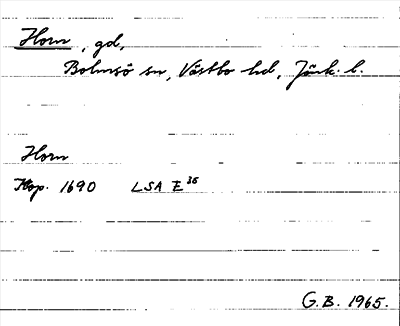 Horn, gd,
Bolmsö sn, Västbo hd, Jönk. l.
Horn
Kop. 1690 LSA E³⁵
G.B. 1965.